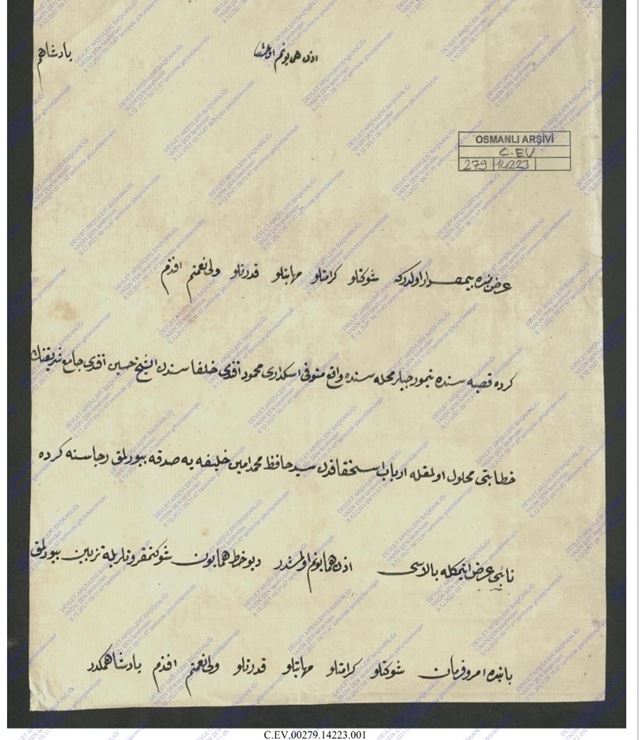 پادشاهم
اذن همایونم اولمشدر
OSMANLI ARŞİVİ
C.EV
279 14223
عرض بنده بیمقدار اولدرکه شوکتلو کرامتلو مهابتلو قدرتلو ولی‌نعمتم افندم
کرده قصبه سنده تیمورجیلر محله سنده واقع متوفی اسکداری محمود افندی خلفا سندن الشیخ حسین افندی جامع شریفنك
خطابتی محلول اولمقله ارباب استحقاقدن سید حافظ محمد امین خلیفه یه صدقه بیورلمق رجاسنه کرده
نائبی عرض ایتمکله بالاسی اذن همایونم اولمشدر دیو خط همایون شوکتمقرونلریله تزیین بیورلمق
بابنده امر و فرمان شوکتلو کرامتلو مهابتلو قدرتلو ولی‌نعمتم افندم پادشاهمکدر
C.EV.00279.14223.001